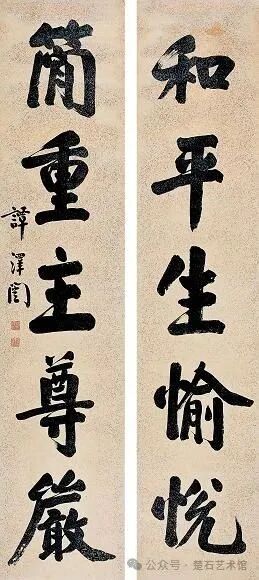 和平生愉悅
簡重主尊嚴
譚澤闓
公众号·楚石艺术馆